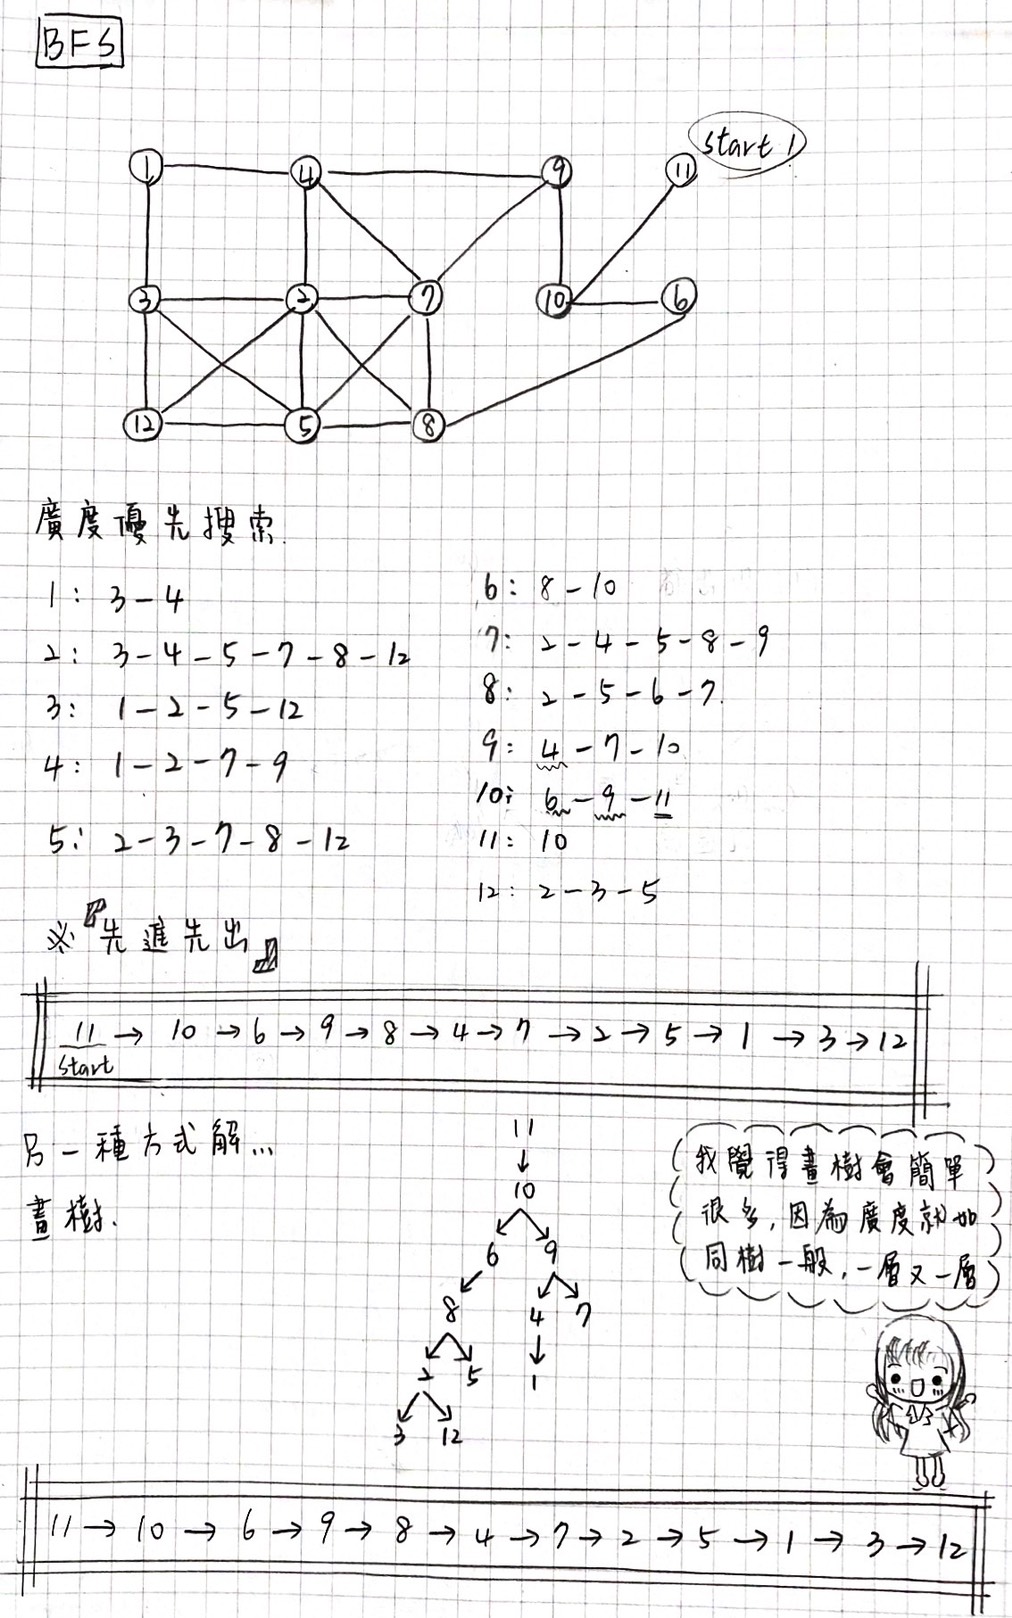 BFS
start 1
1 4 9 11
3 2 7 10 6
12 5 8
廣度優先搜索.
1: 3-4
2: 3-4-5-7-8-12
3: 1-2-5-12
4: 1-2-7-9
5: 2-3-7-8-12
6: 8-10
7: 2-4-5-8-9
8: 2-5-6-7.
9: 4-7-10
10: 6-9-11
11: 10
12: 2-3-5
※『先進先出』
11 → 10 → 6 → 9 → 8 → 4 → 7 → 2 → 5 → 1 → 3 → 12
start
另一種方式解...
畫樹.
11
10
6 9
8 4 7
2 5 1
3 12
我覺得畫樹會簡單
很多, 因為廣度就如
同樹一般, 一層又一層
11 → 10 → 6 → 9 → 8 → 4 → 7 → 2 → 5 → 1 → 3 → 12